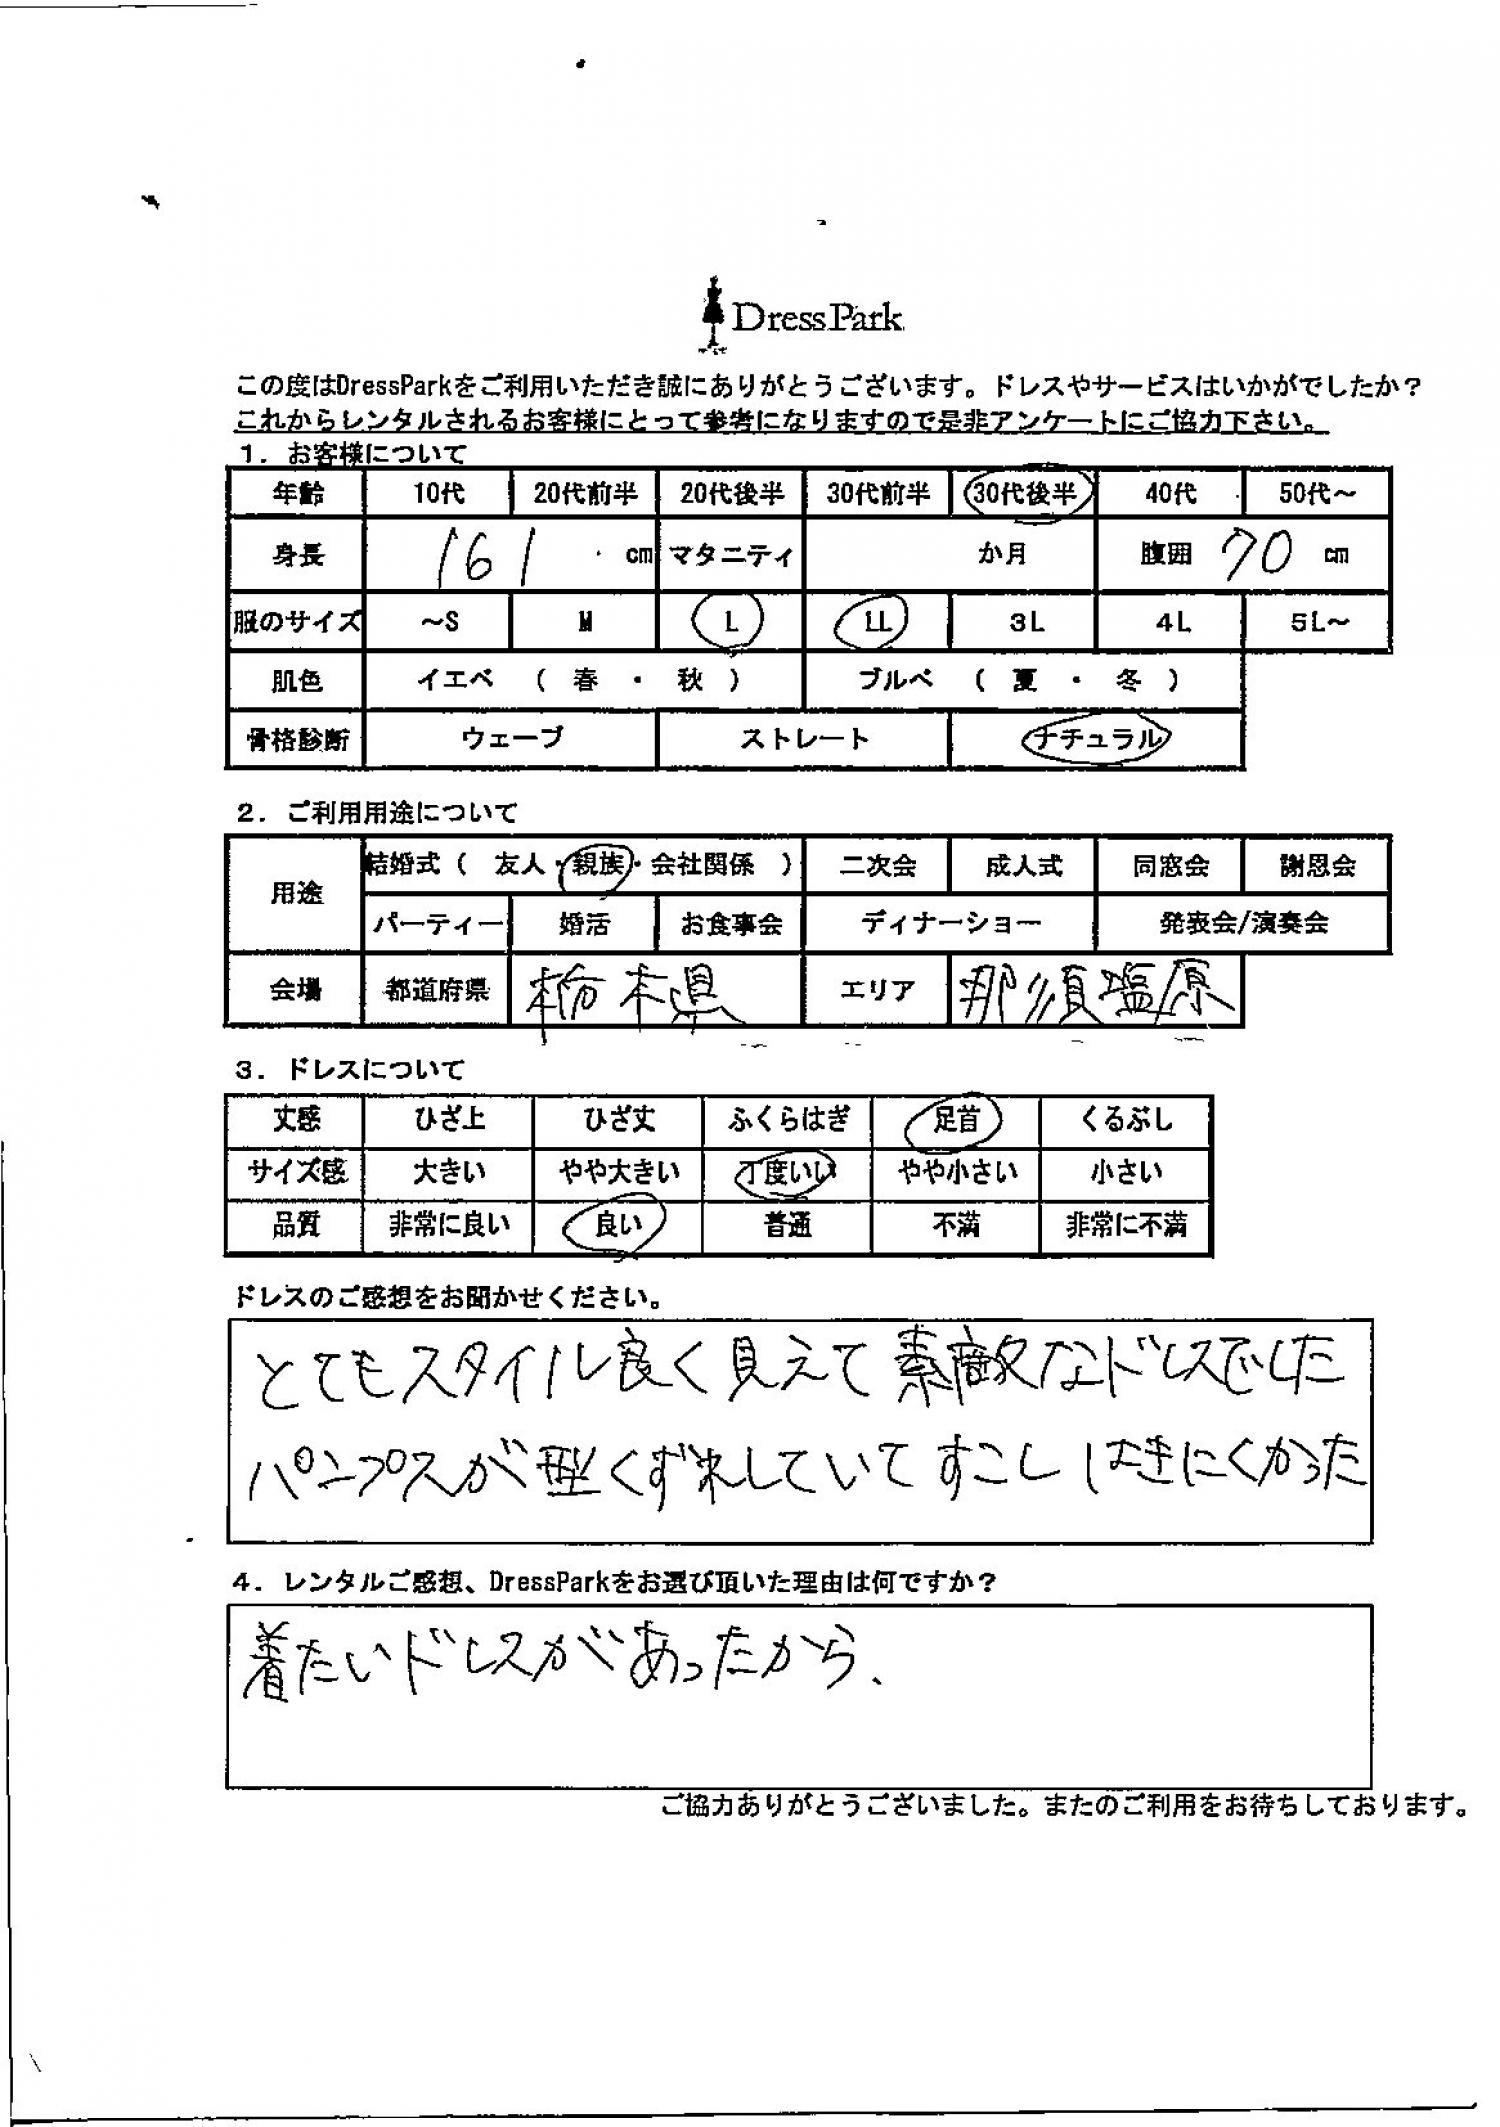 DressPark
この度はDressParkをご利用いただき誠にありがとうございます。ドレスやサービスはいかがでしたか？
これからレンタルされるお客様にとって参考になりますので是非アンケートにご協力下さい。
1．お客様について
年齢 10代 20代前半 20代後半 30代前半 30代後半 40代 50代～
身長 161 cm マタニティ か月 腹囲 70 cm
服のサイズ ～S M L LL 3L 4L 5L～
肌色 イエベ （ 春 ・ 秋 ） ブルベ （ 夏 ・ 冬 ）
骨格診断 ウェーブ ストレート ナチュラル
2．ご利用用途について
用途 結婚式（ 友人・親族・会社関係 ） 二次会 成人式 同窓会 謝恩会
パーティー 婚活 お食事会 ディナーショー 発表会/演奏会
会場 都道府県 栃木県 エリア 那須塩原
3．ドレスについて
丈感 ひざ上 ひざ丈 ふくらはぎ 足首 くるぶし
サイズ感 大きい やや大きい 丁度いい やや小さい 小さい
品質 非常に良い 良い 普通 不満 非常に不満
ドレスのご感想をお聞かせください。
とてもスタイル良く見えて素敵なドレスでした
パンプスが型くずれしていてすこしはきにくかった
4．レンタルご感想、DressParkをお選び頂いた理由は何ですか？
着たいドレスがあったから、
ご協力ありがとうございました。またのご利用をお待ちしております。